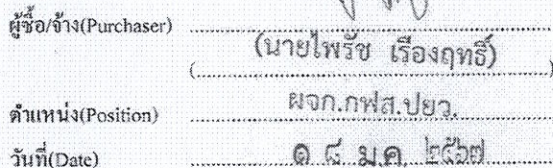 ผู้ซื้อ/จ้าง(Purchaser)
(นายไพรัช เรืองฤทธิ์)
ตำแหน่ง(Position) ผจก.กฟส.ปยว.
วันที่(Date) ๑๘ ม.ค. ๒๕๖๗